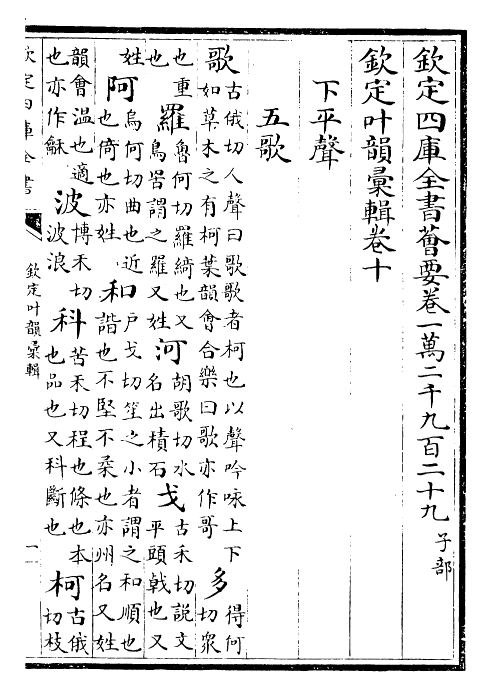 欽定四庫全書薈要卷一萬二千九百二十九 子部
欽定叶韻彙輯卷十
下平聲
五歌
歌 古俄切人聲曰歌歌者柯也以聲吟咏上下如草木之有柯葉韻會合樂曰歌亦作哥 多 得何切衆
也重也 羅 魯何切羅綺也又鳥罟謂之羅又姓 河 胡歌切水名出積石 戈 古禾切說文平頭戟也又
姓 阿 烏何切曲也近也倚也亦姓 和 戶戈切笙之小者謂之和順也諧也不堅不柔也亦州名又姓
韻會溫也適也亦作龢 波 博禾切波浪 科 苦禾切程也條也本也品也又科斷也 柯 古俄切枝
欽定四庫全書
欽定叶韻彙輯
一